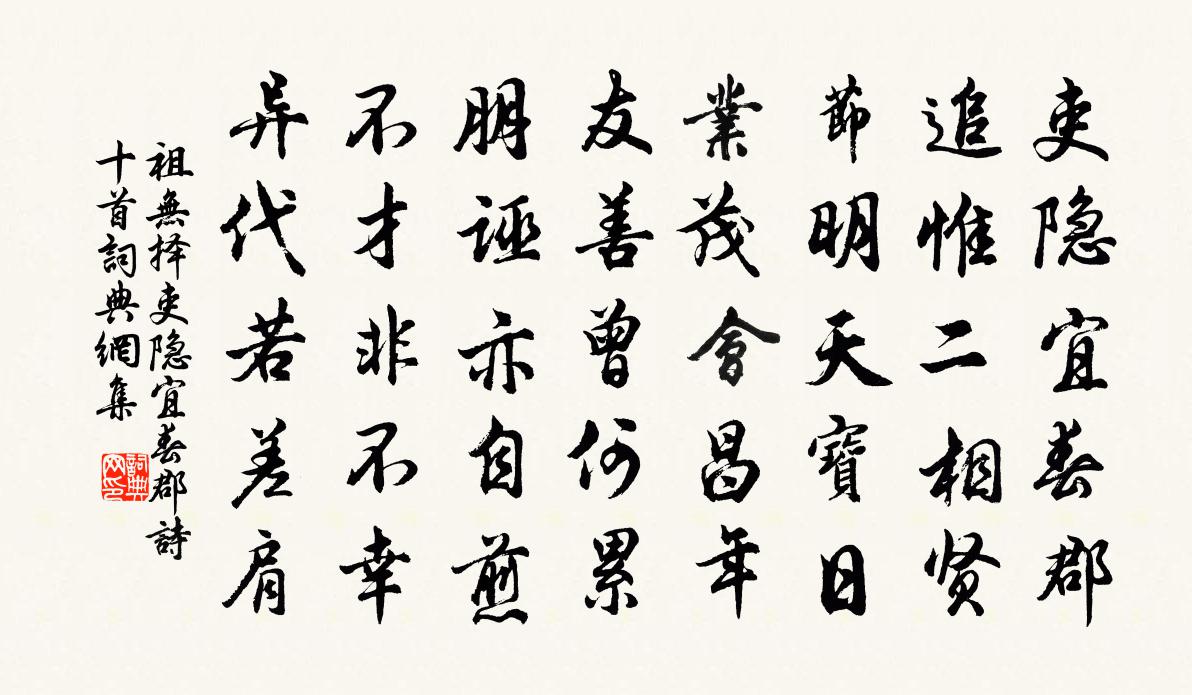 吏隐宜春郡
追惟二相贤
節明天寶日
業茂會昌年
友善曾何累
朋誣亦自煎
不才非不幸
异代若差肩
祖無择吏隐宜春郡詩
十首詞典網集
詞典
网印